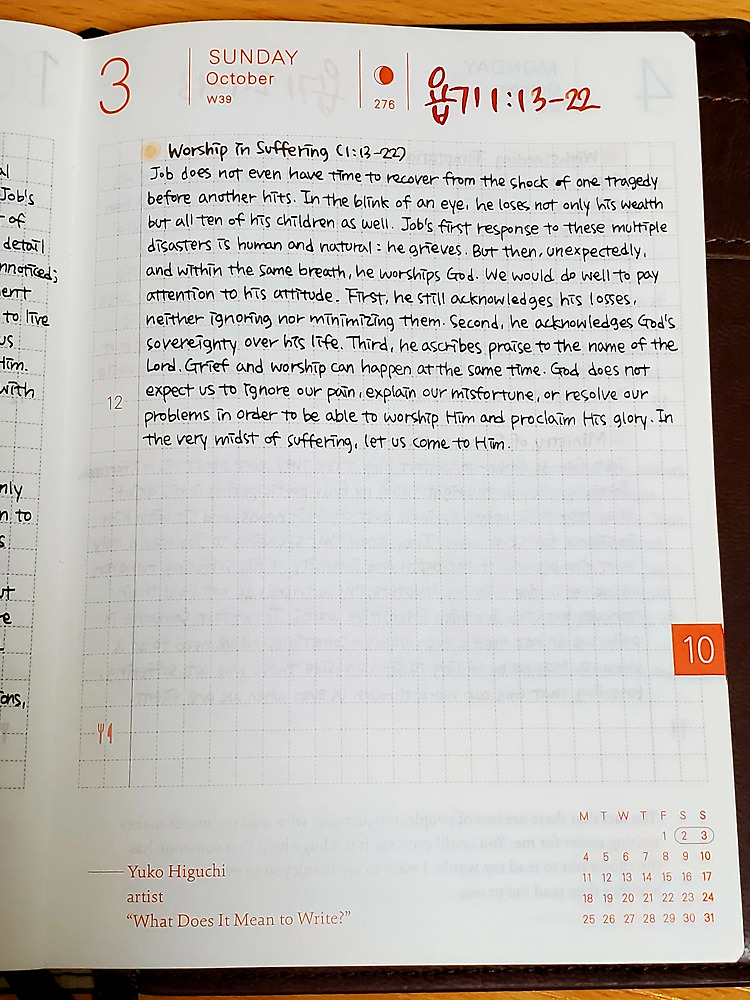 3
SUNDAY
October
W39
276
욥기 1:13-22
Worship in Suffering (1:13-22)
Job does not even have time to recover from the shock of one tragedy
before another hits. In the blink of an eye, he loses not only his wealth
but all ten of his children as well. Job's first response to these multiple
disasters is human and natural: he grieves. But then, unexpectedly,
and within the same breath, he worships God. We would do well to pay
attention to his attitude. First, he still acknowledges his losses,
neither ignoring nor minimizing them. Second, he acknowledges God's
sovereignty over his life. Third, he ascribes praise to the name of the
Lord. Grief and worship can happen at the same time. God does not
expect us to ignore our pain, explain our misfortune, or resolve our
problems in order to be able to worship Him and proclaim His glory. In
the very midst of suffering, let us come to Him.
12
10
Job's
of
detail
to live
Him.
with
to
M T W T F S S
1 2 3
4 5 6 7 8 9 10
11 12 13 14 15 16 17
18 19 20 21 22 23 24
25 26 27 28 29 30 31
Yuko Higuchi
artist
“What Does It Mean to Write?”